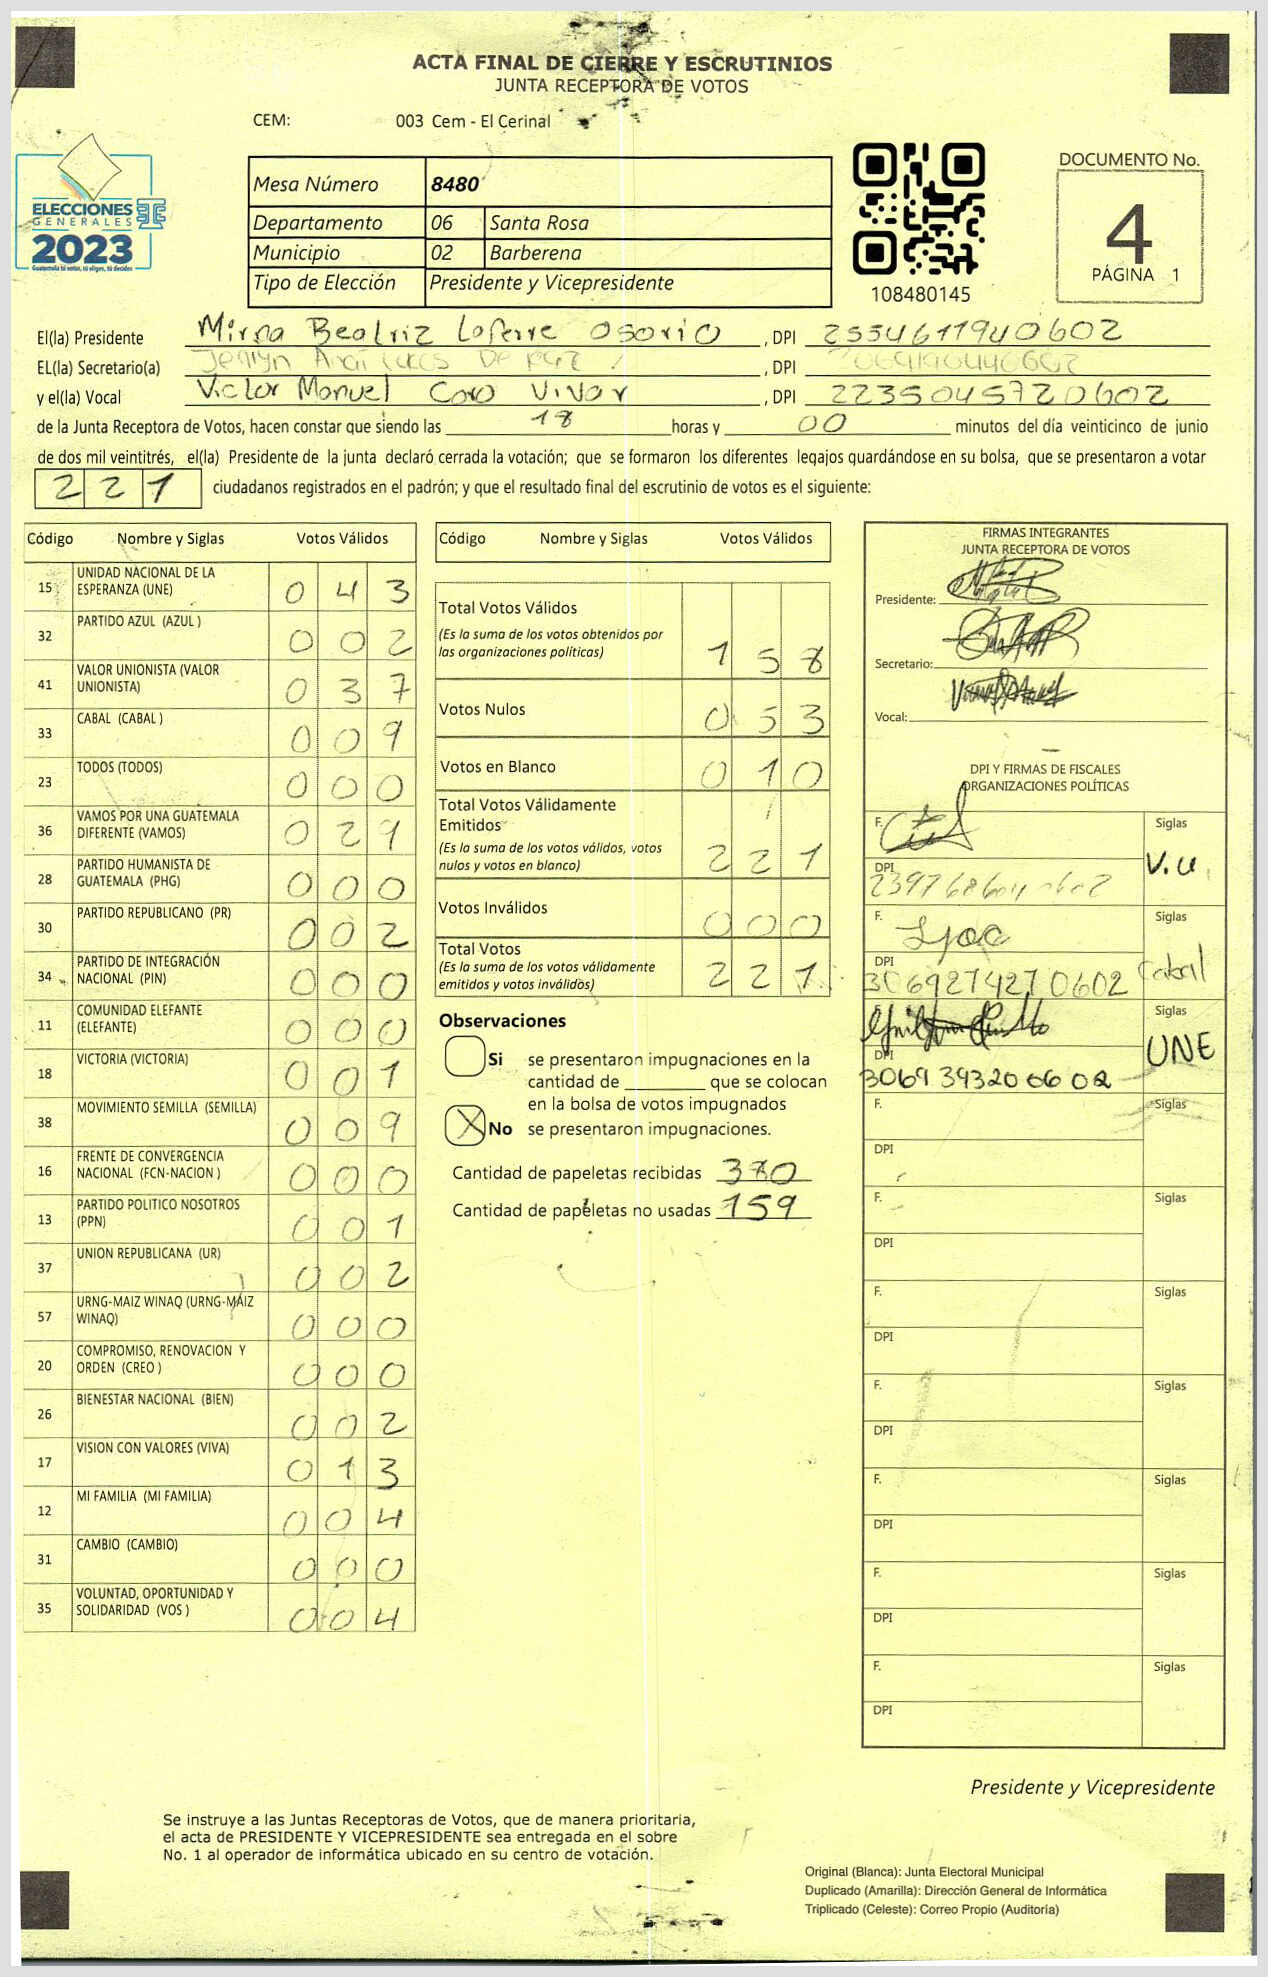 ACTA FINAL DE CIERRE Y ESCRUTINIOS
JUNTA RECEPTORA DE VOTOS
CEM: 003 Cem - El Cerinal
ELECCIONES
GENERALES
2023
Guatemala tú votas, tú eliges, tú decides
Mesa Número 8480
Departamento 06 Santa Rosa
Municipio 02 Barberena
Tipo de Elección Presidente y Vicepresidente
108480145
DOCUMENTO No.
4
PÁGINA 1
El(la) Presidente Mirna Beatriz Laferre Osorio, DPI 2554611940602
EL(la) Secretario(a) , DPI
y el(la) Vocal Victor Manuel Coro Vivar, DPI 2235045720602
de la Junta Receptora de Votos, hacen constar que siendo las 18 horas y 00 minutos del día veinticinco de junio
de dos mil veintitrés, el(la) Presidente de la junta declaró cerrada la votación; que se formaron los diferentes legajos guardándose en su bolsa, que se presentaron a votar
221 ciudadanos registrados en el padrón; y que el resultado final del escrutinio de votos es el siguiente:
Código Nombre y Siglas Votos Válidos
15 UNIDAD NACIONAL DE LA ESPERANZA (UNE) 0 4 3
32 PARTIDO AZUL (AZUL ) 0 0 2
41 VALOR UNIONISTA (VALOR UNIONISTA) 0 3 7
33 CABAL (CABAL ) 0 0 9
23 TODOS (TODOS) 0 0 0
36 VAMOS POR UNA GUATEMALA DIFERENTE (VAMOS) 0 2 9
28 PARTIDO HUMANISTA DE GUATEMALA (PHG) 0 0 0
30 PARTIDO REPUBLICANO (PR) 0 0 2
34 PARTIDO DE INTEGRACIÓN NACIONAL (PIN) 0 0 0
11 COMUNIDAD ELEFANTE (ELEFANTE) 0 0 0
18 VICTORIA (VICTORIA) 0 0 1
38 MOVIMIENTO SEMILLA (SEMILLA) 0 0 9
16 FRENTE DE CONVERGENCIA NACIONAL (FCN-NACION ) 0 0 0
13 PARTIDO POLITICO NOSOTROS (PPN) 0 0 1
37 UNION REPUBLICANA (UR) 0 0 2
57 URNG-MAIZ WINAQ (URNG-MAIZ WINAQ) 0 0 0
20 COMPROMISO, RENOVACION Y ORDEN (CREO ) 0 0 0
26 BIENESTAR NACIONAL (BIEN) 0 0 2
17 VISION CON VALORES (VIVA) 0 1 3
12 MI FAMILIA (MI FAMILIA) 0 0 4
31 CAMBIO (CAMBIO) 0 0 0
35 VOLUNTAD, OPORTUNIDAD Y SOLIDARIDAD (VOS ) 0 0 4
Código Nombre y Siglas Votos Válidos
Total Votos Válidos
(Es la suma de los votos obtenidos por
las organizaciones políticas) 1 5 8
Votos Nulos 0 5 3
Votos en Blanco 0 1 0
Total Votos Válidamente
Emitidos
(Es la suma de los votos válidos, votos
nulos y votos en blanco) 2 2 1
Votos Inválidos 0 0 0
Total Votos
(Es la suma de los votos válidamente
emitidos y votos inválidos) 2 2 1
Observaciones
Si se presentaron impugnaciones en la
cantidad de ________ que se colocan
en la bolsa de votos impugnados
X No se presentaron impugnaciones.
Cantidad de papeletas recibidas 380
Cantidad de papeletas no usadas 159
FIRMAS INTEGRANTES
JUNTA RECEPTORA DE VOTOS
Presidente:
Secretario:
Vocal:
DPI Y FIRMAS DE FISCALES
ORGANIZACIONES POLÍTICAS
F. Siglas
DPI V.U.
F. Siglas
DPI 3069274270602 Cabal
F. Siglas
DPI 3069393200602 UNE
F. Siglas
DPI
F. Siglas
DPI
F. Siglas
DPI
F. Siglas
DPI
F. Siglas
DPI
F. Siglas
DPI
F. Siglas
DPI
Presidente y Vicepresidente
Se instruye a las Juntas Receptoras de Votos, que de manera prioritaria,
el acta de PRESIDENTE Y VICEPRESIDENTE sea entregada en el sobre
No. 1 al operador de informática ubicado en su centro de votación.
Original (Blanca): Junta Electoral Municipal
Duplicado (Amarilla): Dirección General de Informática
Triplicado (Celeste): Correo Propio (Auditoría)